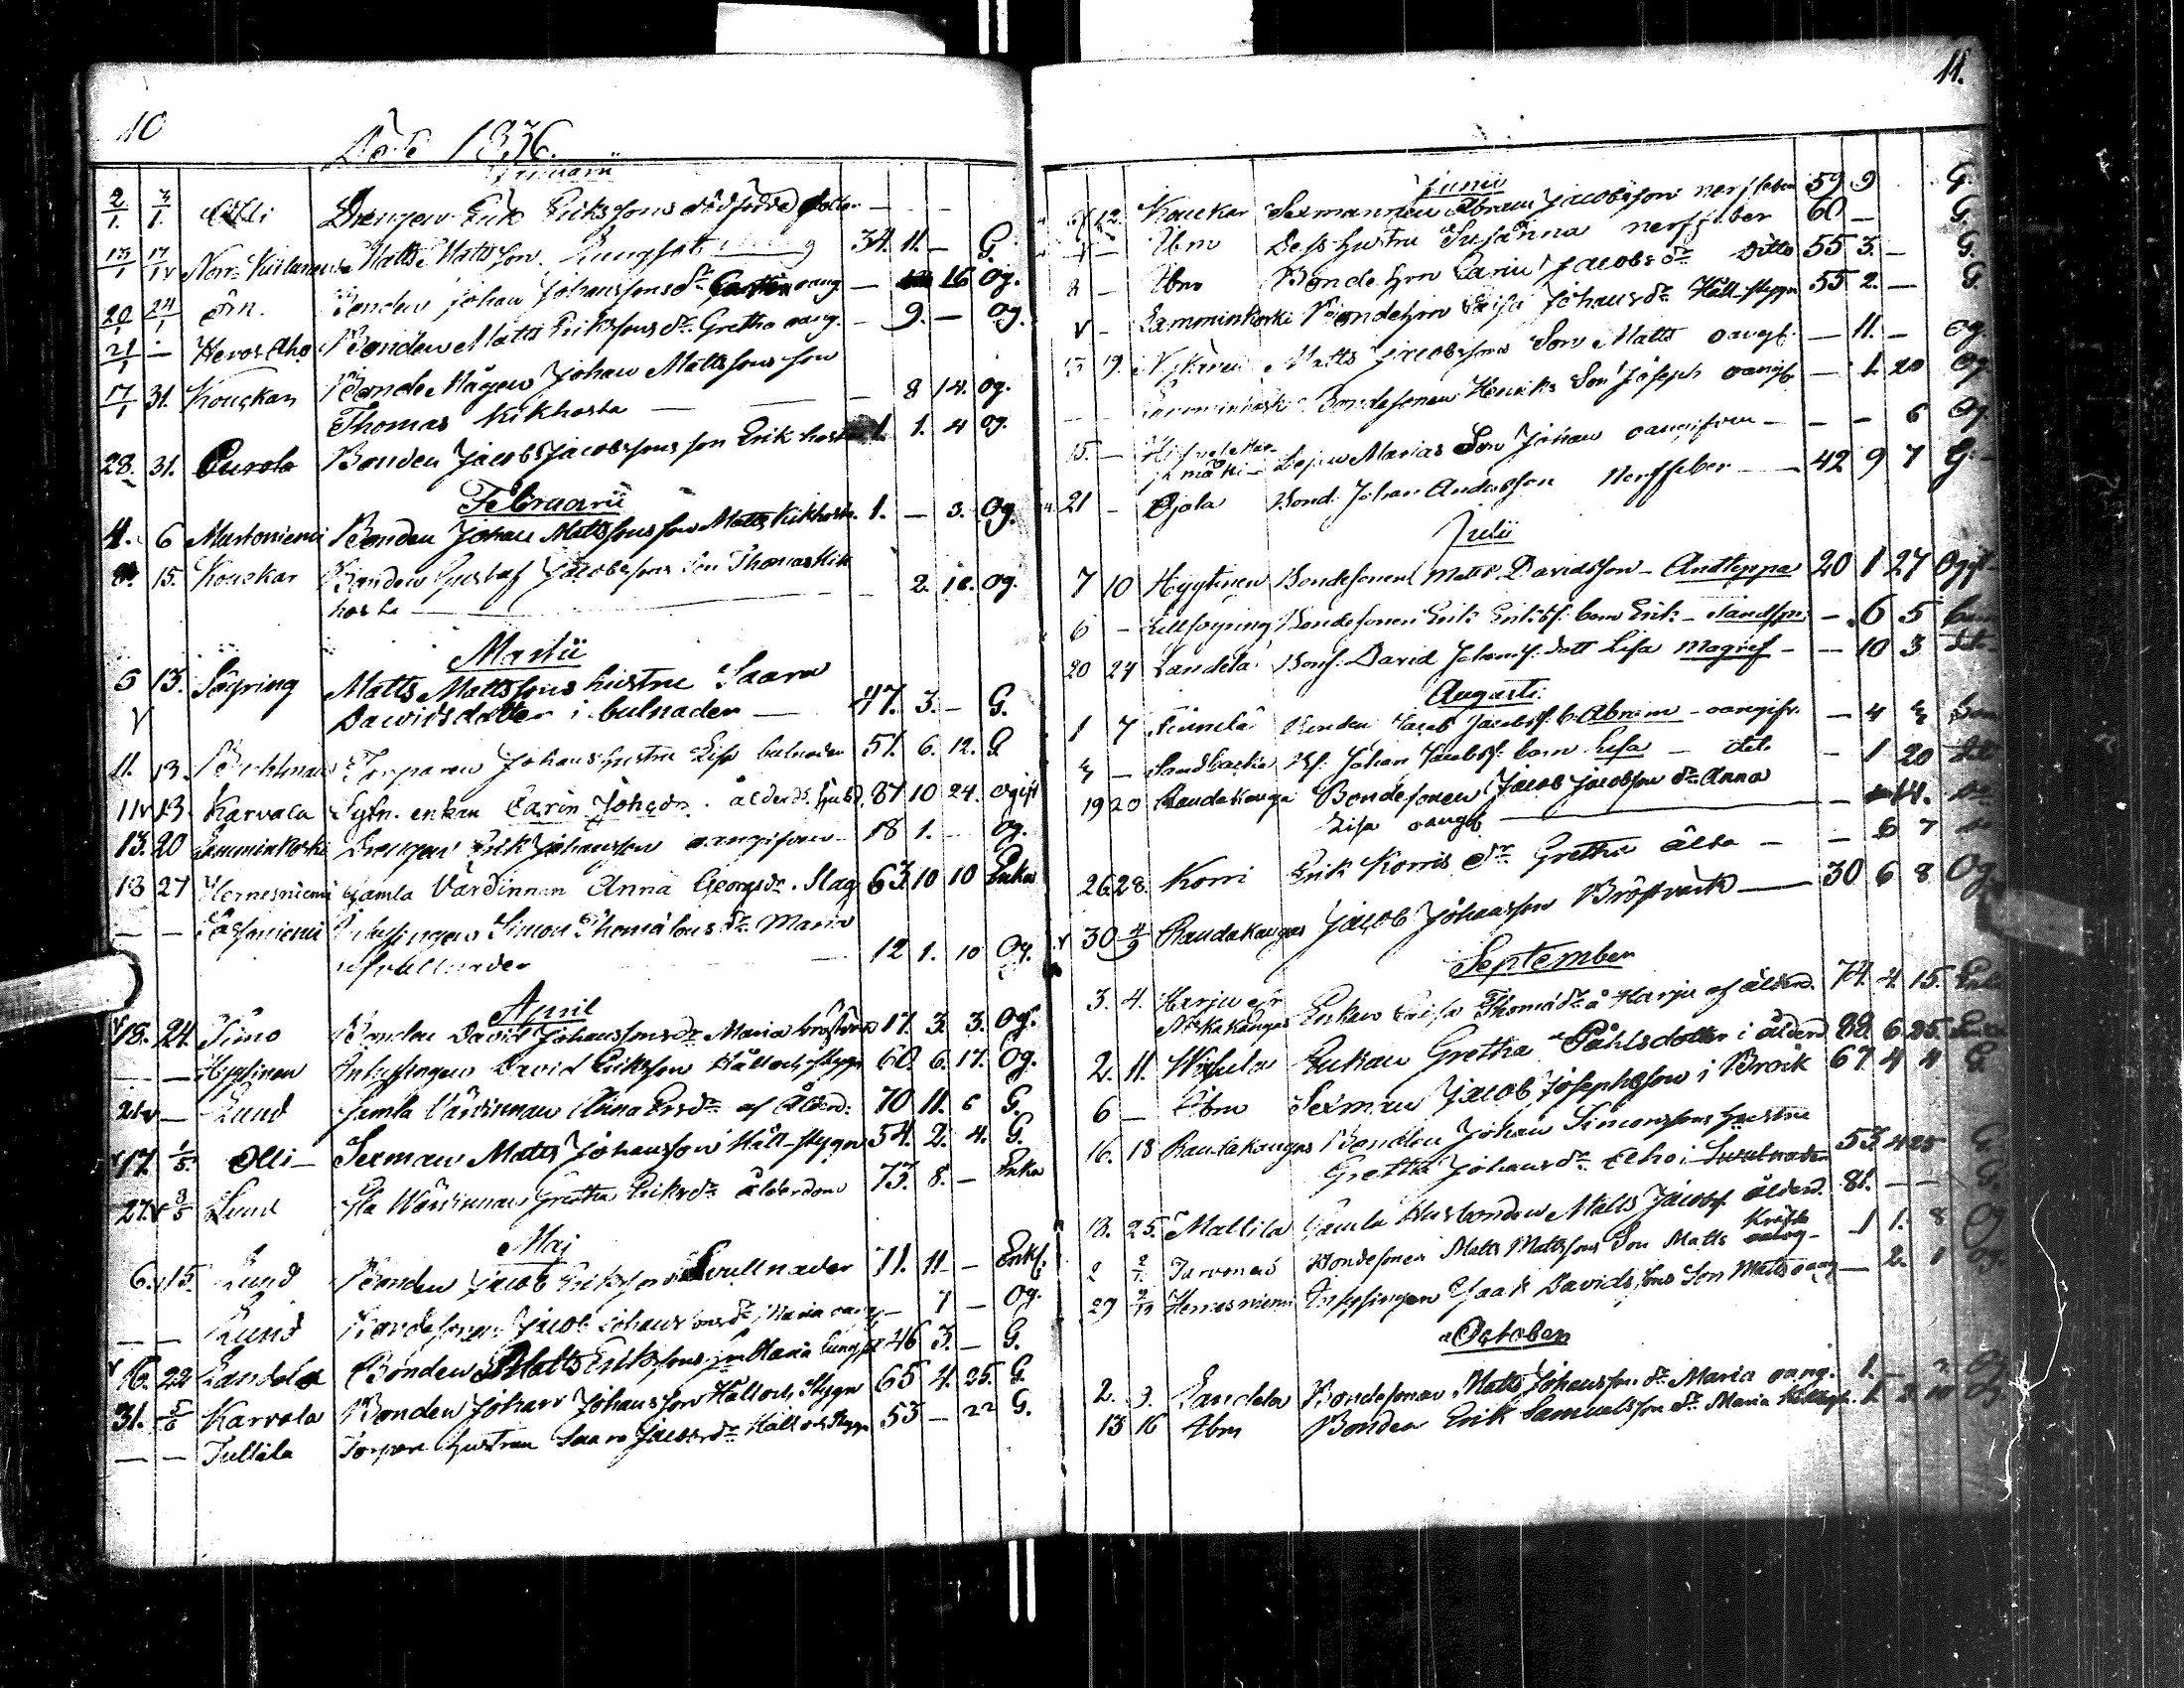 10
Döde 1836.
Januarii
2/1. 7/1. Olli Drengen Erik Erikssons dödfödda dotter — — —
13/1 17/1 v Matts Mattsson Lungsot 34. 11. — G.
20/1 24/1 Örn. Bonden Johan Johanssons dr oang — 16 og.
21/1 — Heros Aho Bonden Matts Erikssons dr Gretha oang. — 9. — og.
17/1 31. Kouckar Bonde Mågen Johan Mattssons son
Thomas Kikhosta — — — 8 14. og.
28. 31. Purola Bonden Jacob Jacobssons son Erik hosta 1. 1. 4 og.
Februarii
4. 6 Murtoniemi Bonden Johan Mattssons son Matts Kikhosta. 1. — 3. Og.
15. Kouckar Bonden Gustaf Jacobssons Son Thomas Kik
hosta — 2. 18. og.
Martii
5 13. Söyring Matts Mattssons hustru Saara
v Davidsdotter i bulnader — 47. 3. — G.
11. 13. Torparen Johans hustru Lisa bulnader 51. 6. 12. G
11 v 13. Karvala enkan Carin Johsdr. ålderd. 87 10 24. ogift
13. 20 Lamminkoski Drengen Erik Johansson oangifven 18 1. — Og.
18 27 Hernesniemi Gamla Värdinnan Anna Georgsdr. Slag 63. 10 10 Enka
— — Inhysingen Simon Thomasons dr Maria
12 1. 10 Og.
April
v 18. 24. Timo Bonden David Johanssons dr Maria bröstvärk 17. 3. 3. Og.
— — Hyytinen Inhysingen David Eriksson Håll och stygn 60. 6. 17. Og.
21 v — Lund Gamla Värdinnan Anna Ersdr af Ålderd. 70 11. 6 G.
v 17. 1/5. Olli — Sexman Matts Johansson Håll-stygn 54. 2. 4. G.
27. v 8/5 Lund Gla Wärdinnan Gretha Eriksdr ålderdom 73. 8. — Enka
Maj
6. v 15. Lund Bonden Jacob Eriksson Svullnader 71. 11 — Enkl.
— — Lund Bondesonen Jacob Johanssons dr Maria oang — 7 — Og.
v 16. 22 Landela Bonden Matts Erikssons hu Maria Lungsot 46 3. — G.
31. 5/6 Karvala Bonden Johan Johansson Håll och Stygn 65 4. 25. G.
— — Tullila Torpare hustrun Saara Jacobsdr Håll och Stygn 53 — 22 G.
11.
Junii
12. Kouckar Sexmannen Abram Jacobsson nerffeber 59. 9 G.
v — Ibm Dess hustru Susanna nerffeber 60 — G.
8 — Ibm Bonde hrn Carin Jacobsdr Ditto 55 3. — G.
v — Lamminkoski Bondehrn Lisa Johansdr Håll-stygn 55 2. — G.
15 19. Nykänen Matts Jacobssons Son Matts oangf. — 11. — og.
— — Lamminkoski Bondesonen Henriks Son Joseph oangif — 1. 20 og
15. — Marias Son Johan oangifven — — — 6 Og.
21 — Ojala Bond. Johan Andersson Nerffeber — 42 9 7 G.
Julii
7 10 Hyytinen Bondesonen Matts Davidsson — Andtäppa 20 1 27 Ogift
6 — Lillsöyring Bondesonen Erik Eriksf. barn Erik — — 6 5 barn
20 24 Landela Bonf. David Johansf. dott Lisa Magref — — 10 3 dito
Augusti:
1 7 Bonden Jacob Jacobsf. b. Abram — oangifv. — 4 3 barn
3 — Sandbacka Bf. Johan Jacobsf. barn Lisa — dito — 1 20 dito
19 20 Raudakangas Bondesonen Jacob Jacobsson dr Anna
Lisa oangf — — 14.
26 28. Korri Erik Korris dr Gretha Älta — — 6 7
v 30 4/9 Raudakangas Jacob Johansson Bröstvärk — 30 6 8 Og
September
3. 4. Harju Enkan Caisa Thomasdr å Harju af ålderd. 74. 4. 15. Enka
2. 11. Enkan Gretha Påhlsdotter i ålderd 88. 6. 25. Enka
6 — Ibm Sexman Jacob Josephsson i Bråck 67. 4 4 G.
16. 18 Raudakangas Bonden Johan Simonssons hustru
Gretha Johansdr Aho i Swulnader 53. 4 25 G.
18. 25. Mattila Gamla Husbonden Matts Jacobsf. ålderd. 81. — — G.
2 2/1. Tarvonen Bondesonen Matts Mattssons Son Matts Kräfta 1 1. 8 Og
29 2/10 Hernesniemi Inhysingen Isaak Davidssons Son Matts oang — 2. 1 Og.
October
2. 9. Landela Bondesonen Matts Johansson dr Maria oang. 1.
13 16 Ibm Bonden Erik Samuelsson dr Maria 10